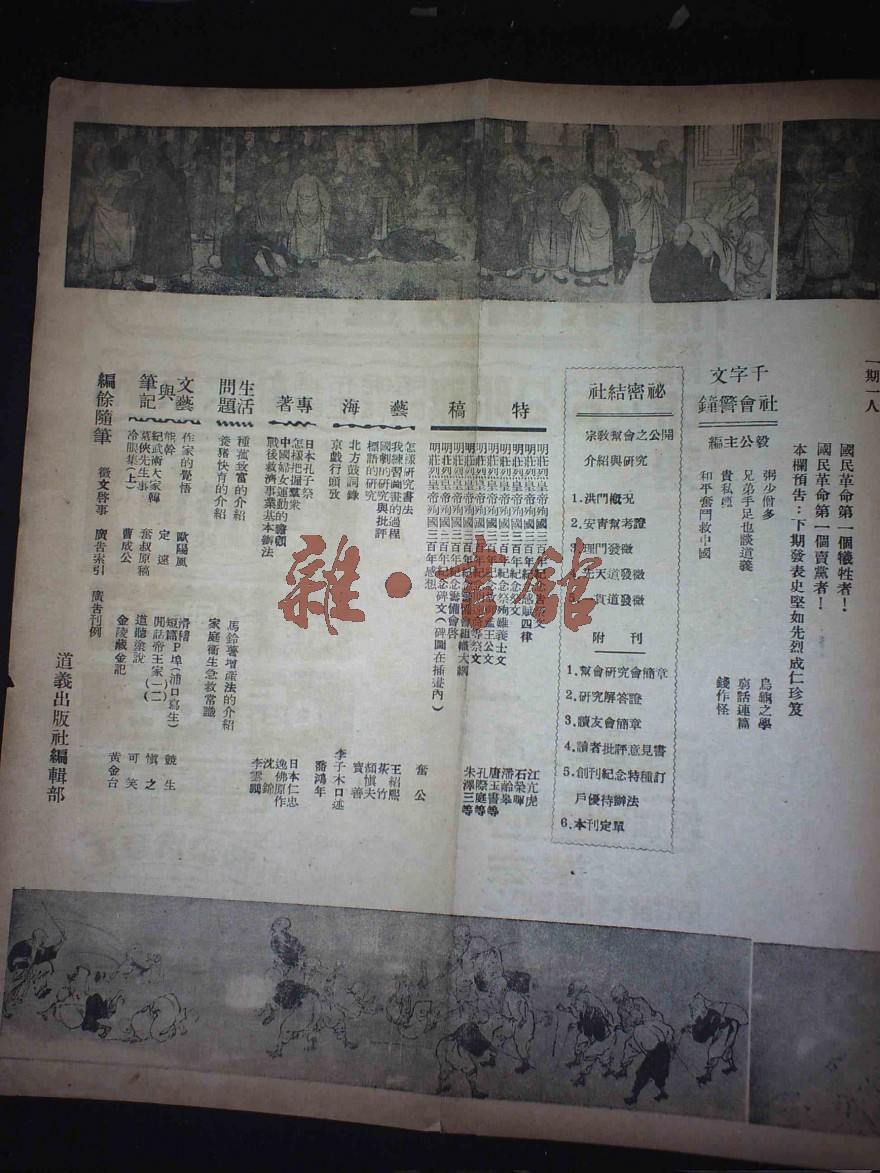 一期一人
國民革命第一個犧牲者！
國民革命第一個賣黨者！
本欄預告：下期發表史堅如先烈成仁珍笈
千字文
社會警鐘
毅公主編
粥少僧多
兄弟手足也談道義
貴私德
和平奮鬥救中國
烏龜之學
窮話連篇
錢作怪
祕密結社
宗教幫會之公開
介紹與研究
1.洪門概況
2.安靑幫考證
3.理門發微
4.先天道發微
5.一貫道發微
附刊
1.幫會研究會簡章
2.研究解答證
3.讀友會簡章
4.讀者批評意見書
5.創刊紀念特種訂
戶優待辦法
6.本刊定單
特稿
明莊烈皇帝殉國三百年紀念
明莊烈皇帝殉國三百年紀念碑文（碑圖在插畫內）
明莊烈皇帝殉國三百年感想
江亢虎
石榮暲
潘齡皋
唐玉書等
孔際庭等
朱澤三等
藝海
怎樣研究書法
我練習圖畫的過程
國劇的研究與批評
標語的研究
北方鼓詞錄
京戲行頭攷
奮公
王紹熙
荻竹
顏愼夫
寶善
李子木口述
潘鴻年
專著
日本孔子祭
怎樣把握羣衆
中國婦女運動的瞻顧
戰後救濟事業基本辦法
日本仁忠
逸佛原作
沈錦
李雲驥
生活問題
種萞致富的介紹
養猪快育的介紹
馬鈴薯增產法的介紹
家庭衞生急救常識
文藝與筆記
作家的覺悟
能幹
紀武術大家韓
慕俠先生事
冷眼集（上）
歐陽風
定遠
奮叔原稿
曹成公
滑稽短篇P埠（浦口寫生）
閒話帝王家（一）
道聽塗說
金陵藏金記
競生
愼之
可笑
黃金台
編餘隨筆
徵文啓事
廣告索引
廣告刊例
道義出版社編輯部
雜·書館